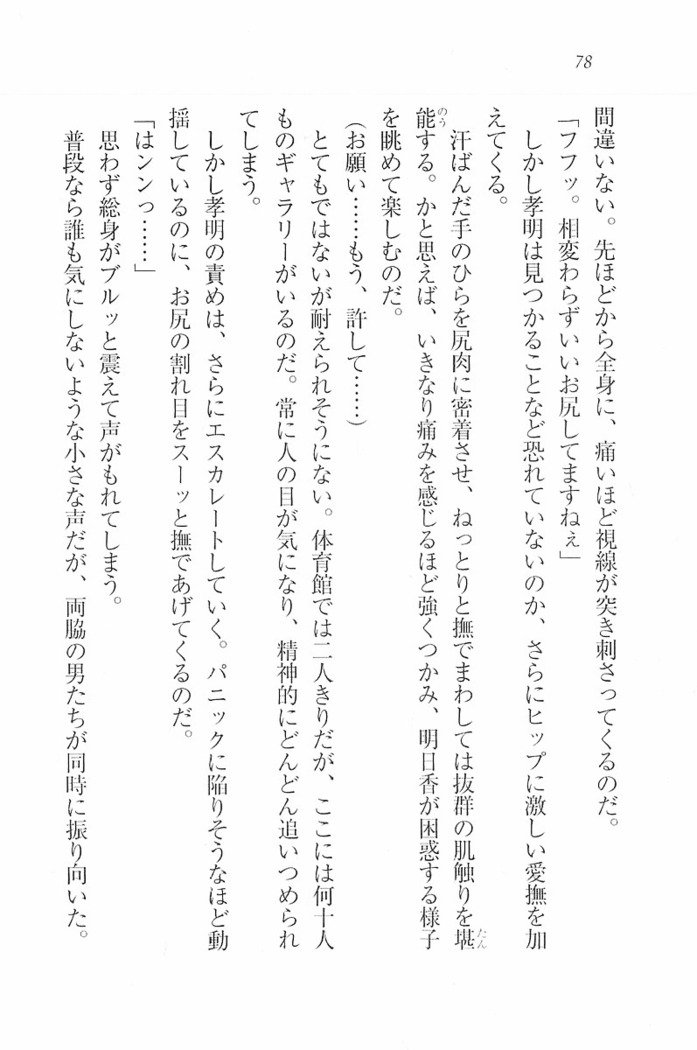 78
間違いない。先ほどから全身に、痛いほど視線が突き刺さってくるのだ。
「フフッ。相変わらずいいお尻してますねぇ」
しかし孝明は見つかることなど恐れていないのか、さらにヒップに激しい愛撫を加
えてくる。
汗ばんだ手のひらを尻肉に密着させ、ねっとりと撫でまわしては抜群の肌触りを堪
能する。かと思えば、いきなり痛みを感じるほど強くつかみ、明日香が困惑する様子
を眺めて楽しむのだ。
（お願い……もう、許して……）
とてもではないが耐えられそうにない。体育館では二人きりだが、ここには何十人
ものギャラリーがいるのだ。常に人の目が気になり、精神的にどんどん追いつめられ
てしまう。
しかし孝明の責めは、さらにエスカレートしていく。パニックに陥りそうなほど動
揺しているのに、お尻の割れ目をスーッと撫であげてくるのだ。
「はンンっ……」
思わず総身がブルッと震えて声がもれてしまう。
普段なら誰も気にしないような小さな声だが、両脇の男たちが同時に振り向いた。